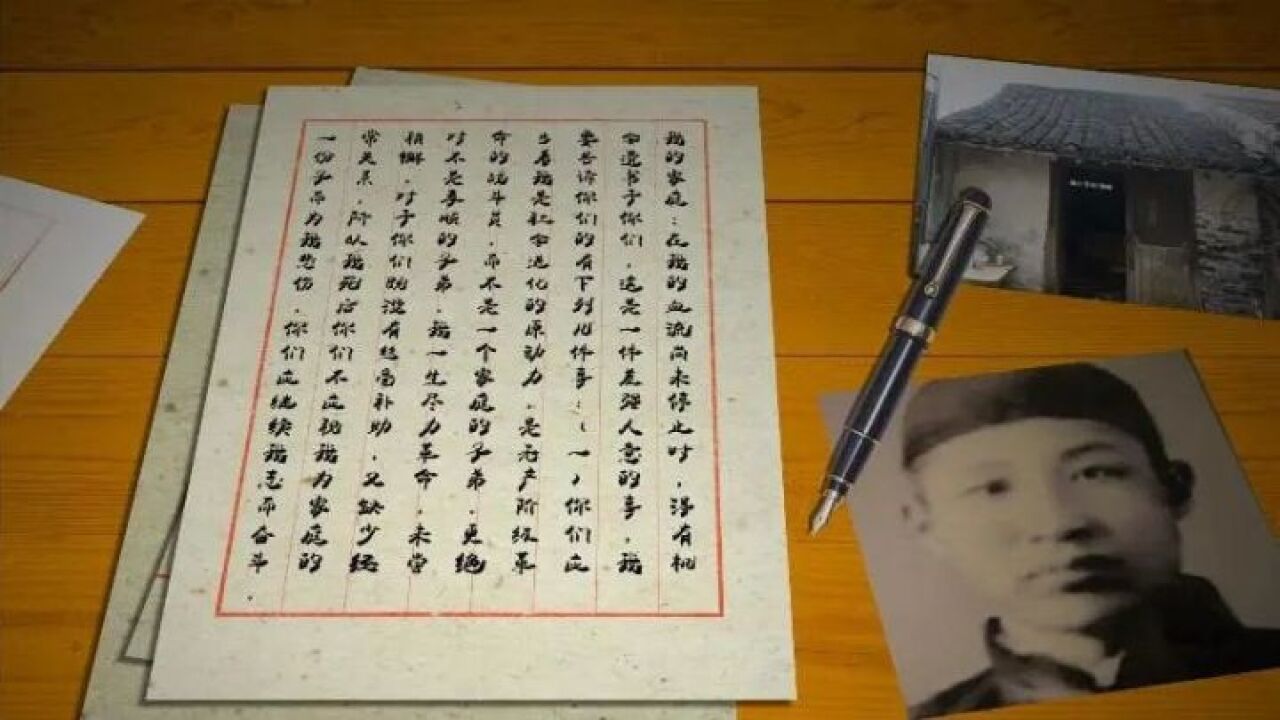 我的家庭：在我的血流尚未停止时，得有机
会遗书于你们，这是一件差强人意的事，我
要告诉你们的有下列几件事：（一）你们应
当看我是社会进化的原动力，是无产阶级革
命的战斗员，而不是一个家庭的子弟，更绝
对不是孝顺的子弟．我一生尽力革命，未尝
稍懈，对于你们始没有丝毫补助，又缺少经
常关系，所以我死后你们不应视我为家庭的
一份子而为我悲伤，你们应继续我志而奋斗．